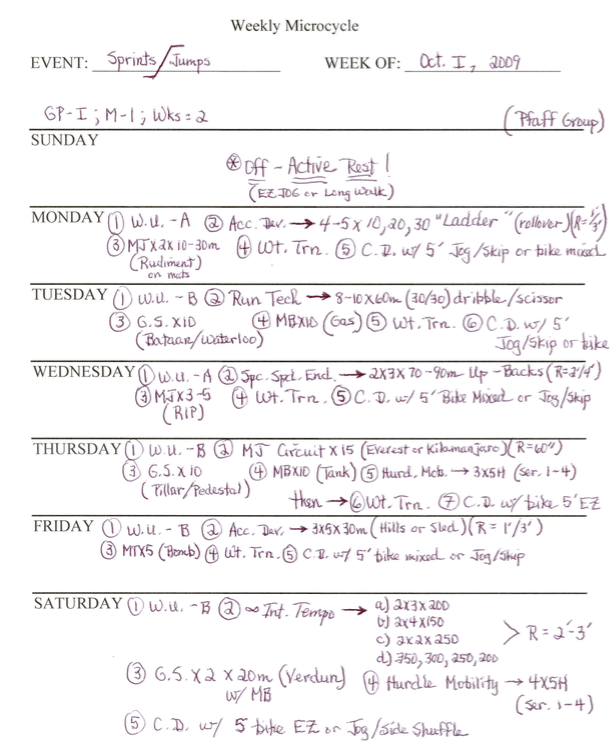 Weekly Microcycle
EVENT: Sprints/Jumps WEEK OF: Oct. I, 2009
GP-I ; M-1 ; Wks = 2 (Pfaff Group)
SUNDAY
* Off - Active Rest!
(EZ JOG or Long Walk)
MONDAY ① W.U. -A ② Acc. Dev. → 4-5 x 10, 20, 30 "Ladder" (rollover) (R=1'/3')
③ MJ x 2 x 10-30m ④ Wt. Trn. ⑤ C.D. w/ 5' Jog/Skip or bike mixed
(Rudiment)
on mats
TUESDAY ① W.U. - B ② Run Tech → 8-10 x 60m (30/30) dribble/scissor
③ G.S. x 10 ④ MBX10 (Gas) ⑤ Wt. Trn. ⑥ C.D. w/ 5'
(Bataan/Waterloo) Jog/Skip or bike
WEDNESDAY ① W.U. -A ② Spc. Spd. End. → 2x3x70-90m Up-Backs (R=2'/4')
③ MJ x 3-5 ④ Wt. Trn. ⑤ C.D. w/ 5' Bike Mixed or Jog/Skip
(RIP)
THURSDAY ① W.U. - B ② MJ Circuit x 15 (Everest or Kilamanjaro) (R=60")
③ G.S. x 10 ④ MBX10 (Tank) ⑤ Hurd. Mob. → 3x5H (Ser. 1-4)
(Pillar/Pedestal) then → ⑥ Wt. Trn. ⑦ C.D. w/ bike 5' EZ
FRIDAY ① W.U. - B ② Acc. Dev. → 3x5x30m (Hills or Sled) (R = 1'/3')
③ MTX5 (Bomb) ④ Wt. Trn. ⑤ C.D. w/ 5' bike mixed or Jog/Skip
SATURDAY ① W.U. - B ② ∞ Int. Tempo → a) 2x3x200
b) 2x4x150
c) 2x2x250 > R = 2'-3'
d) 350, 300, 250, 200
③ G.S. x 2 x 20m (Verdun) ④ Hurdle Mobility → 4x5H
w/ MB (Ser. 1-4)
⑤ C.D. w/ 5' bike EZ or Jog/Side Shuffle